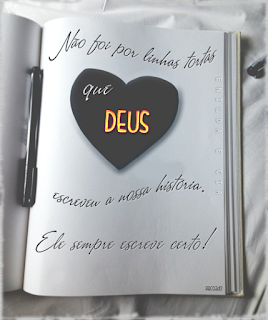 Não foi por linhas tortas
que
DEUS
escreveu a nossa história.
Ele sempre escreve certo!